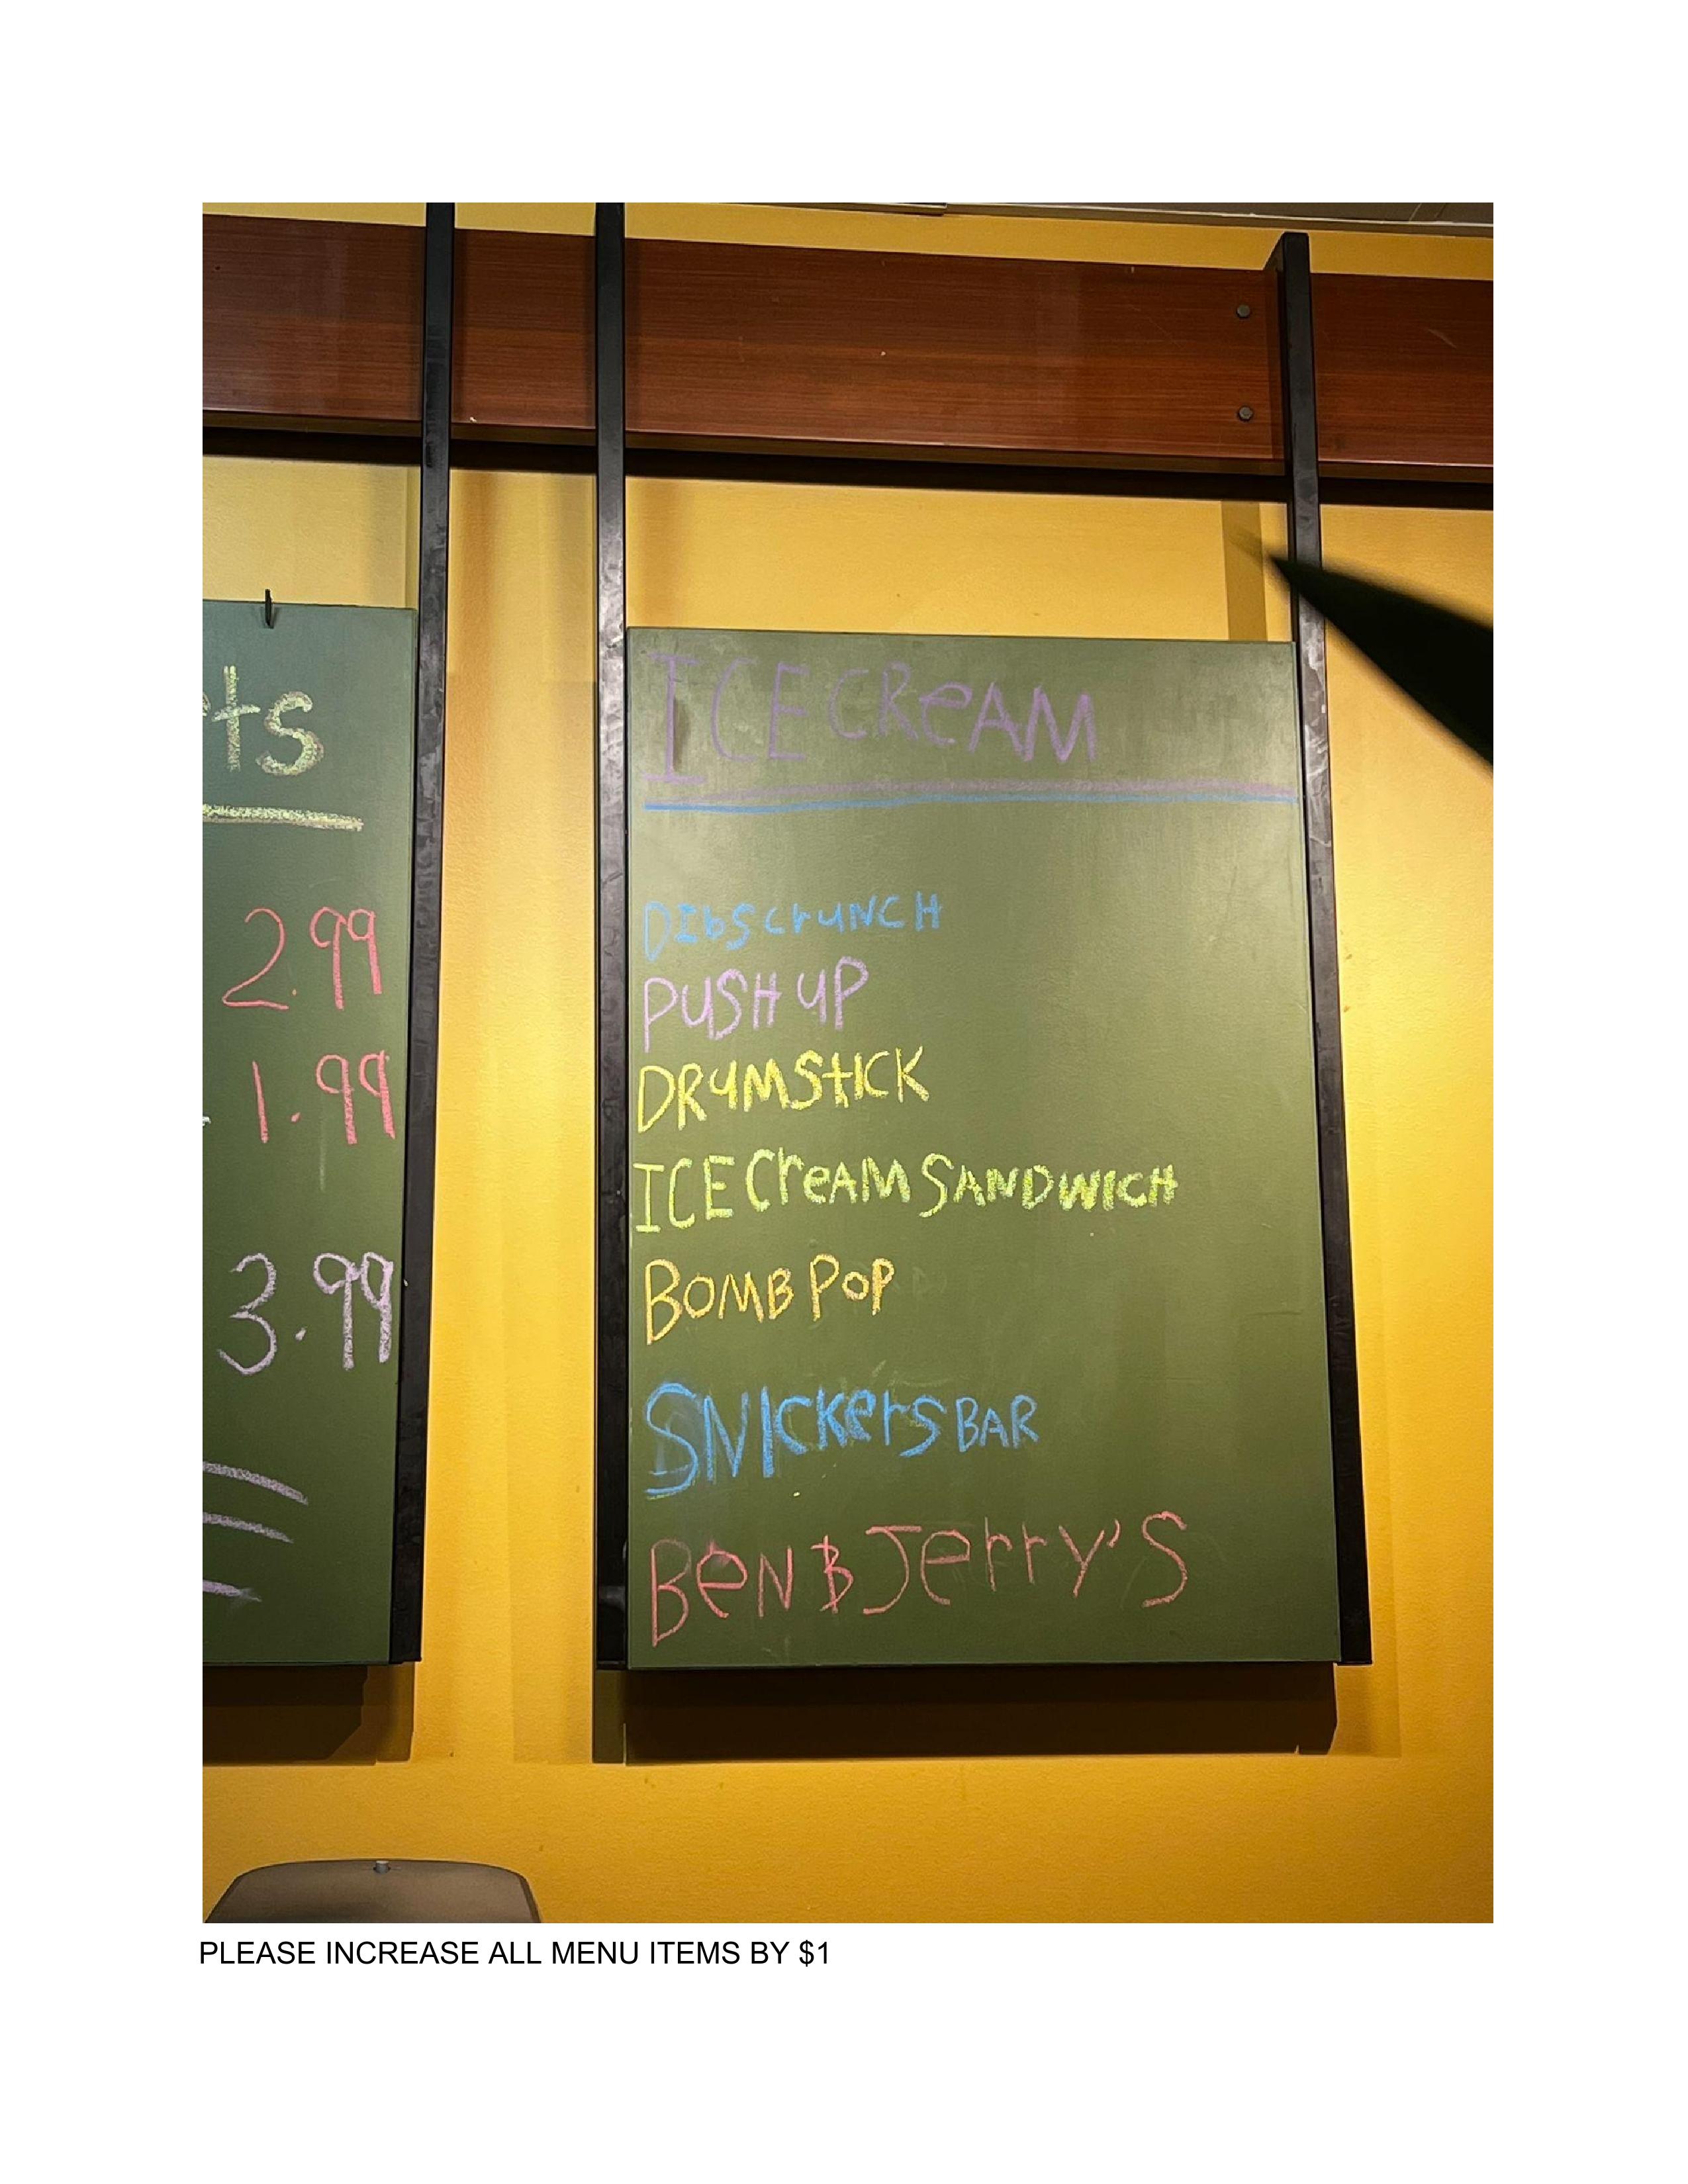 ts
2.99
1.99
3.99
ICE CREAM
DIbS CrUNCH
PUSH UP
DRUMStICK
ICE CreAM SANDWICH
BOMB POP
SNICkerS BAR
BeN & Jerry'S
PLEASE INCREASE ALL MENU ITEMS BY $1